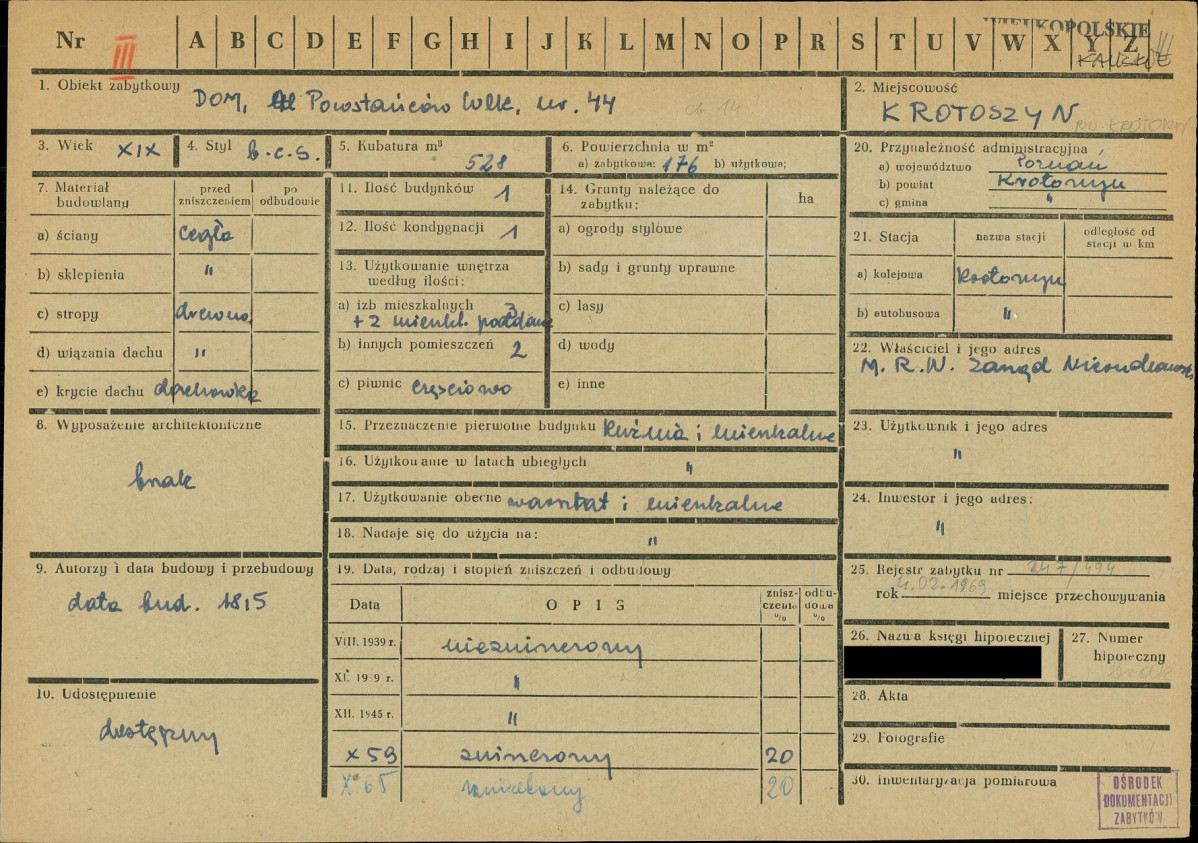 Nr III A B C D E F G H I J K L M N O P R S T U V W X Y Z
WIELKOPOLSKIE
KALISKIE
1. Obiekt zabytkowy
DOM, Powstańców Wlk. nr. 44
2. Miejscowość
KROTOSZYN
3. Wiek XIX
4. Styl b.c.s.
5. Kubatura m³
528
6. Powierzchnia w m²
a) zabytkowa: 176 b) użytkowa:
20. Przynależność administracyjna
a) województwo Poznań
b) powiat Krotoszyn
c) gmina "
7. Materiał budowlany
przed zniszczeniem
po odbudowie
a) ściany cegła
b) sklepienia "
c) stropy drewno
d) wiązania dachu "
e) krycie dachu dachówka
11. Ilość budynków 1
12. Ilość kondygnacji 1
13. Użytkowanie wnętrza
według ilości:
a) izb mieszkalnych 3
+ 2 mieszk. poddasze
b) innych pomieszczeń 2
c) piwnic częściowo
14. Grunty należące do
zabytku:
ha
a) ogrody stylowe
b) sady i grunty uprawne
c) lasy
d) wody
e) inne
21. Stacja
nazwa stacji
odległość od
stacji w km
a) kolejowa Krotoszyn
b) autobusowa "
22. Właściciel i jego adres
M. R. N. Zarząd Nieruchomości
8. Wyposażenie architektoniczne
brak
15. Przeznaczenie pierwotne budynku kuźnia i mieszkalne
16. Użytkowanie w latach ubiegłych "
17. Użytkowanie obecne warsztat i mieszkalne
18. Nadaje się do użycia na: "
23. Użytkownik i jego adres
"
24. Inwestor i jego adres:
"
9. Autorzy i data budowy i przebudowy
data bud. 1815
10. Udostępnienie
dostępny
19. Data, rodzaj i stopień zniszczeń i odbudowy
Data
OPIS
znisz-
czenia
%
odbu-
dowa
%
VIII. 1939 r. niezniszczony
XI. 1939 r. "
XII. 1945 r. "
X 59 zniszczony 20
X 65 20
25. Rejestr zabytku nr 247/494
rok 4.02.1969 miejsce przechowywania
26. Nazwa księgi hipotecznej
27. Numer
hipoteczny
28. Akta
29. Fotografie
30. Inwentaryzacja pomiarowa
OŚRODEK
DOKUMENTACJI
ZABYTKÓW